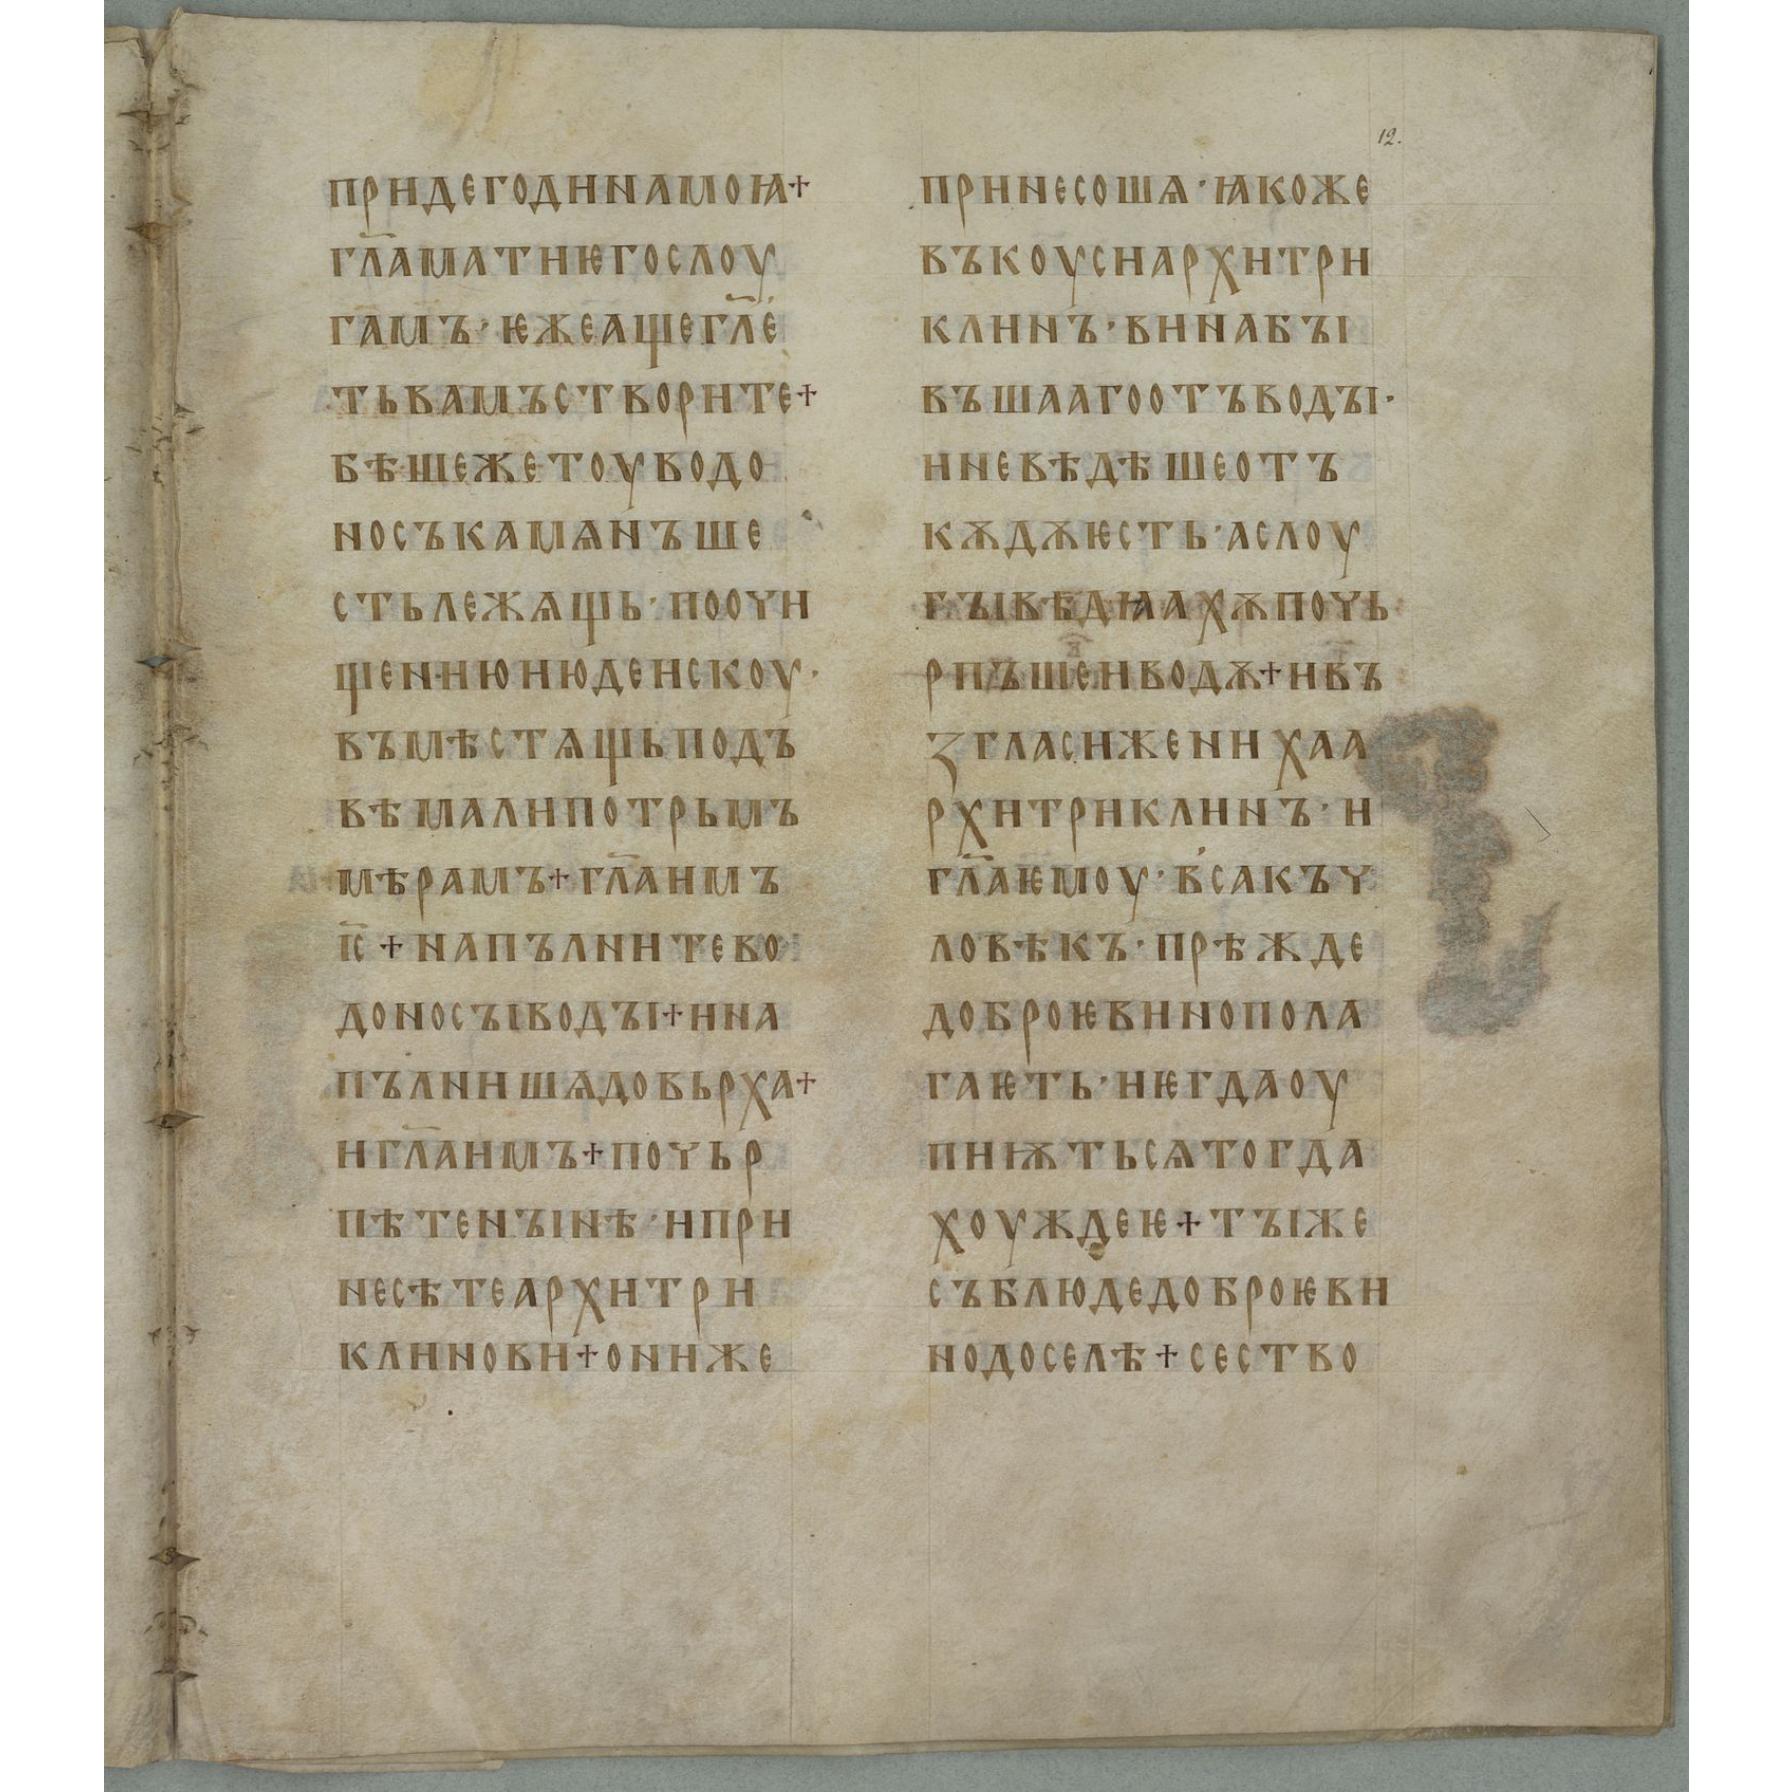 12.
придегодинамоꙗ+
гл҃аматиѥгослоу
гамъ·ѥжеащегл҃е
тьвамъствориte+
бѣшежетоуводо
носъкамѧнъше
стьлежѧщь·поочи
щениюиюденскоу·
въмѣстѧщьподъ
вѣмалипотрьмъ
мѣрамъ+гл҃аимъ
іс҃+напълнитево
доносꙑводꙑ+ина
пълнишѧдовьрха+
игл҃аимъ+почьр
пѣтенꙑнѣ·ипри
несѣтеархитри
клинови+ониже
принесошѧ·ꙗкоже
въкоусиархитри
клинъ·винабꙑ
въшаагоотъводꙑ·
иневѣдѣшеотъ
кѫдѫѥсть·аслоу
гꙑвѣдꙗахѫпочь
рпъшеиводѫ+ивъ
згласижениха
рхитриклинъ·и
гл҃аѥмоу·вс҆акъч
ловѣкъ·прѣжде
доброѥвинопола
гаѥть·иѥгдаоу
пиѭтьсѧтогда
хоуждеѥ+тꙑже
съблюдедоброѥви
нодоселѣ+сество